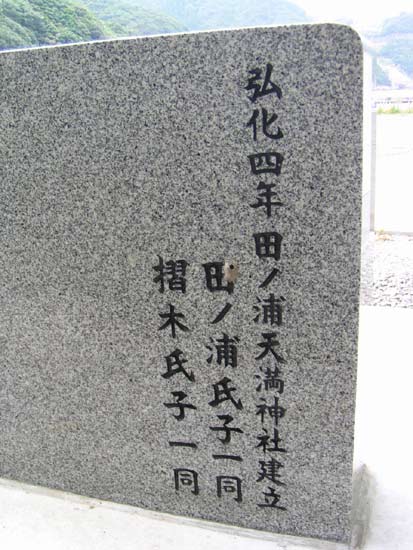 弘化四年 田ノ浦天満神社建立
田ノ浦氏子一同
摺木氏子一同